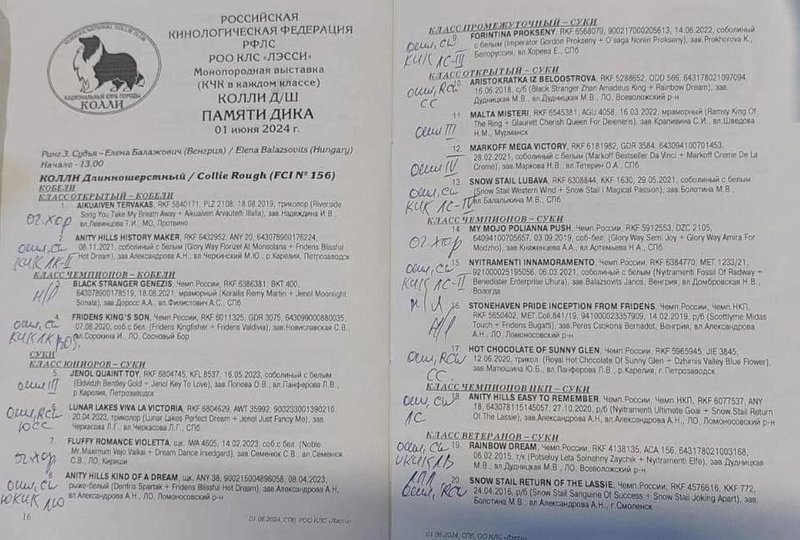 НАЦИОНАЛЬНЫЙ КЛУБ ПОРОДЫ
КОЛЛИ
РОССИЙСКАЯ
КИНОЛОГИЧЕСКАЯ ФЕДЕРАЦИЯ
РФЛС
РОО КЛС «ЛЭССИ»
Монопородная выставка
(КЧК в каждом классе)
КОЛЛИ Д/Ш
ПАМЯТИ ДИКА
01 июня 2024 г.
Ринг 3. Судья – Елена Балажович (Венгрия) / Elena Balazsovits (Hungary)
Начало - 13.00
КОЛЛИ Длинношерстный / Collie Rough (FCI № 156)
КОБЕЛИ
КЛАСС ОТКРЫТЫЙ - КОБЕЛИ
1. AIKUAIVEN TERVAKAS, RKF 5840171, PLZ 2108, 18.08.2019, триколор (Riverside
Song You Take My Breath Away + Aikuaiven Arvautelt Illalla), зав. Надеждина И.В.,
вл.Левинцова Т.И., МО, Протвино
оч.хор
2. ANITY HILLS HISTORY MAKER, RKF 6432950, ANY 20, 643078900176224,
08.11.2021, соболиный с белым (Glory Way Florizel At Monsolana + Fridens Blissful
Hot Dream), зав.Александрова А.Н., вл.Черкинский М.Ю., р.Карелия, Петрозаводск
КЛАСС ЧЕМПИОНОВ - КОБЕЛИ
3. BLACK STRANGER GENEZIS, Чемп.России, RKF 6386381, ВКТ 400,
643078900178519, 18.08.2021, мраморный (Koralis Remy Martin + Jenol Moonlight
Sonata), зав.Доррос А.А., вл.Филистович А.С., СПб
4. FRIDENS KING'S SON, Чемп.России, RKF 6011325, GDR 3075, 643099000880035,
07.08.2020, соб.бел. (Fridens Kingfisher + Fridens Valdivia), зав.Новиславская С.В.,
вл.Сорокина И., ЛО, Сосновый Бор
СУКИ
КЛАСС ЮНИОРОВ - СУКИ
5. JENOL QUAINT TOY, RKF 6804745, KFL 8537, 16.05.2023, соболиный с белым
(Ekdwidzh Bentley Gold + Jenol Key To Love), зав.Попова О.В., вл.Панферова Л.В.,
р.Карелия, Петрозаводск
6. LUNAR LAKES VIVA LA VICTORIA, RKF 6804629, AWT 35992, 900233001390210,
20.04.2023, триколор (Lunar Lakes Perfect Dream + Jenol Just Fancy Me), зав.
Черкасова Л.Г., вл.Черкасова Л.Г., СПб
7. FLUFFY ROMANCE VIOLETTA, щк. WIA 4605, 14.02.2023, соб.бел. (Noble
Mr.Maximum Vejo Vaikai + Dance Dream Insedera), зав.Семенюк С.В., вл.Семенюк
С.В., ЛО, Кириши
оч.хор
8. ANITY HILLS KIND OF A DREAM, щк, ANY 38, 900215004896058, 08.04.2023,
рыже-белый (Denfris Spartak + Fridens Blissful Hot Dream), зав.Александрова А.Н.,
вл.Александрова А.Н., ЛО, Ломоносовский р-н
16
01.06.2024, СПб, РОО КЛС «Лэсси»
КЛАСС ПРОМЕЖУТОЧНЫЙ – СУКИ
9. FORINTINA PROKSENY, RKF 6568079, 900217000205813, 14.06.2022, соболиный
с белым (Imperator Gordon Prokseny + O'saga Noren Prokseny), зав.Prokhorova K.,
Белоруссия, вл.Хорева Е., СПб
КЛАСС ОТКРЫТЫЙ - СУКИ
10. ARISTOKRATKA IZ BELOOSTROVA, RKF 5288652, ODD 566, 643178021097094,
16.06.2018, с/б (Black Stranger Zhan Amadeus King + Rainbow Dream), зав.
Дудницкая М.В., вл.Дудницкая М.В., ЛО, Всеволожский р-н
11. MALTA MISTERI, RKF 6545381, AGU 4058, 16.03.2022, мраморный (Ramsy King
Of The Ring + Glauretti Cherish Queen For Deieneris), зав.Крапивина С.И., вл.Шведова
Н.М., Мурманск
12. MARKOFF MEGA VICTORY, RKF 6181982, GDR 3584, 643094100701453,
28.02.2021, соболиный с белым (Markoff Bestseller Da Vinci + Markoff Creme De La
Creme), зав.Маркова Н.В., вл.Тетерин О.А., СПб
13. SNOW STAIL LUBAVA, RKF 6308844, KKF 1630, 29.05.2021, соболиный с белым
(Snow Stail Western Wind + Snow Stail Magical Passion), зав.Болотина М.В.,
вл.Балалыкина М.В., СПб
КЛАСС ЧЕМПИОНОВ - СУКИ
14. MY MOJO POLIANNA PUSH, Чемп.России, RKF 5912553, DZC 2105,
643094100705657, 03.09.2019, соб-бел. (Glory Way Semi Joy + Glory Way Amirs For
Modzho), зав.Княженцева А.А., вл.Артемьева Н.А., СПб
оч.хор
15. NYITRAMENTI INNAMORAMENTO, Чемп.России, RKF 6384770, MET 1233/21,
921000025195056, 06.03.2021, соболиный с белый (Nyitramenti Fossil Of Radway +
Benedister Enterprise Uhura), зав.Balazsovits Janos, Венгрия, вл.Домбровская Н.В.,
Вологда
16. STONEHAVEN PRIDE INCEPTION FROM FRIDENS, Чемп.России, Чемп.НКП,
RKF 5650402, MET Coll.841/19, 941000023357909, 14.02.2019, р/б (Scottlyme Midas
Touch + Fridens Bugatti), зав.Peres Csokona Bornadet, Венгрия, вл.Александрова
А.Н., ЛО, Ломоносовский р-н
17. HOT CHOCOLATE OF SUNNY GLEN, Чемп.России, RKF 5965945, JIE 3845,
12.06.2020, трикол. (Royal Hot Chocolate Of Sunny Glen + Dzhirnis Valley Blue Flower),
зав.Матюшина Ю.Б., вл.Панферова Л.В., р.Карелия, г.Петрозаводск
КЛАСС ЧЕМПИОНОВ НКП – СУКИ
18. ANITY HILLS EASY TO REMEMBER, Чемп.России, Чемп.НКП, RKF 6077537, ANY
18, 643078115145057, 27.10.2020, р/б (Nyitramenti Ultimate Goal + Snow Stail Return
Of The Lassie), зав.Александрова А.Н., вл.Александрова А.Н., ЛО, Ломоносовский р-н
КЛАСС ВЕТЕРАНОВ - СУКИ
19. RAINBOW DREAM, Чемп.России, RKF 4138135, ACA 156, 643178021003168,
06.02.2015, т/к (Potseluy Leta Solnehny Zaychik + Nyitramenti Elfe), зав.Дудницкая
М.В., вл.Дудницкая М.В., ЛО, Всеволожский р-н
20. SNOW STAIL RETURN OF THE LASSIE, Чемп.России, RKF 4576616, KKF 772,
24.04.2016, р/б (Snow Stail Sanguine Of Success + Snow Stail Joking Apart), зав.
Болотина М.В., вл.Александрова А.Н., г.Смоленск
01.06.2024, СПб, ОО КЛС «Лэсси»